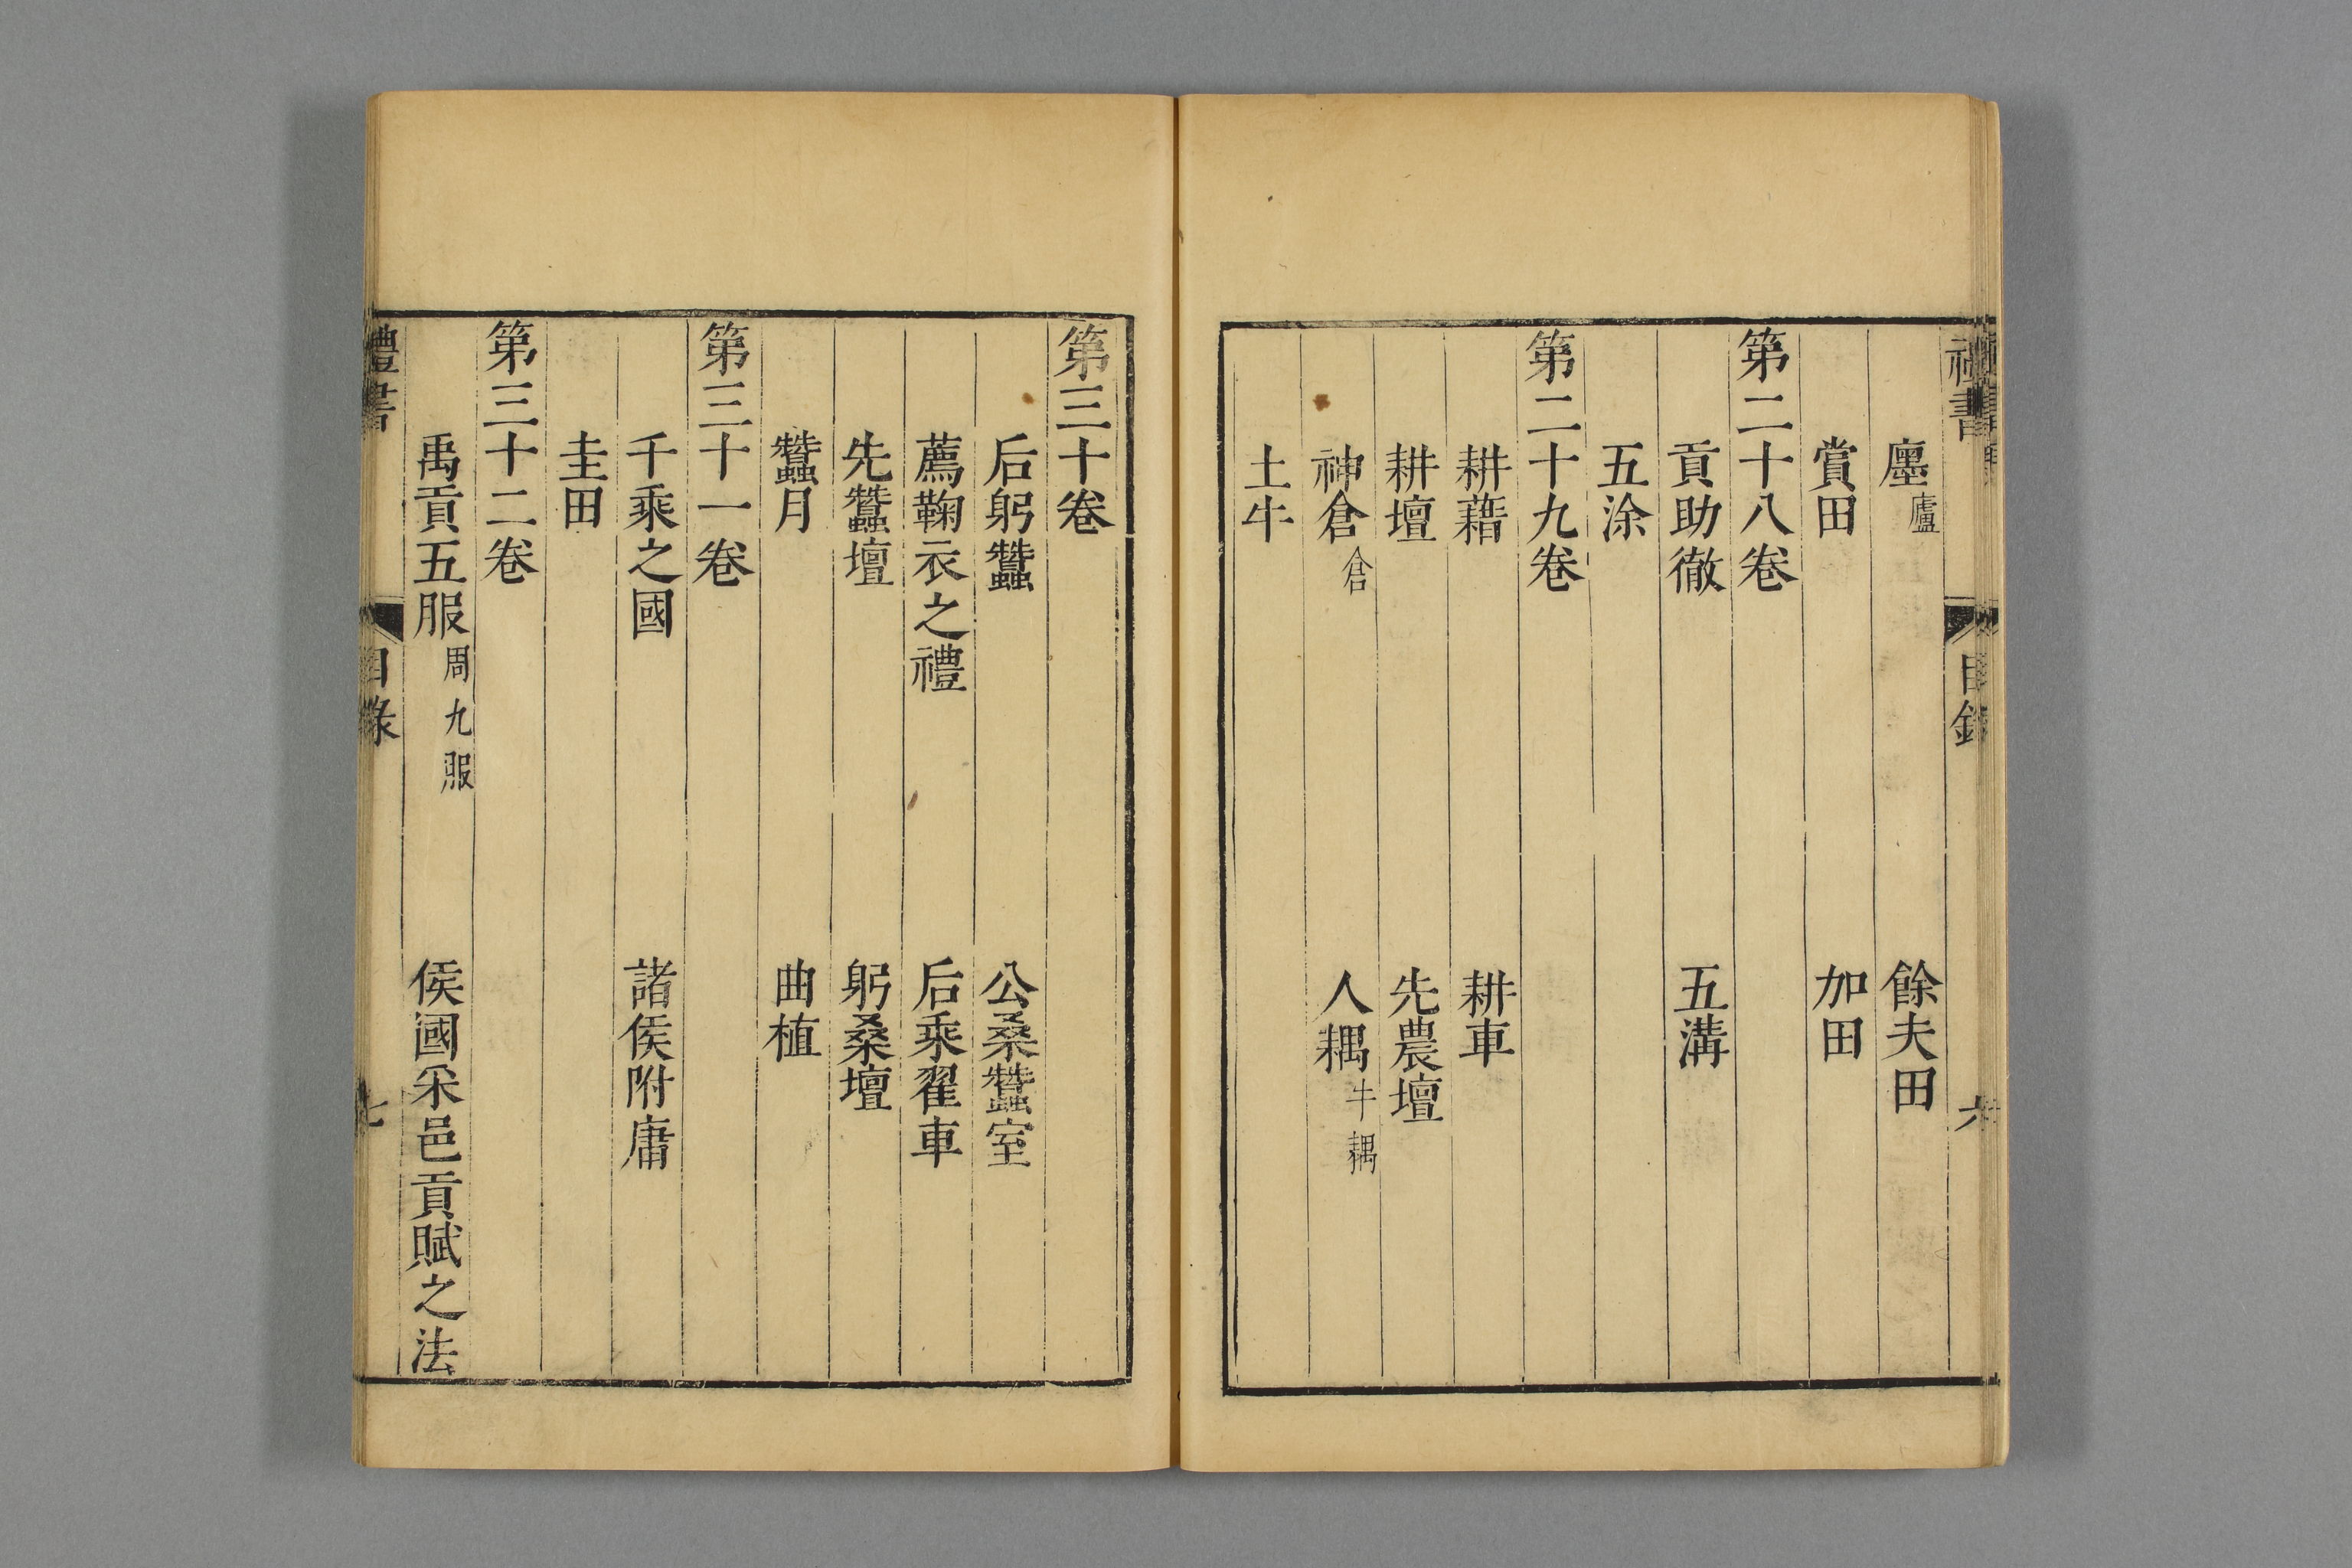 禮書 目錄 六
廛 廬 餘夫田
賞田 加田
第二十八卷
貢助徹 五溝
五涂
第二十九卷
耕藉 耕車
耕壇 先農壇
神倉 倉 人耦 牛耦
土牛
第三十卷
后躬蠶 公桑蠶室
薦鞠衣之禮 后乘翟車
先蠶壇 躬桑壇
蠶月 曲植
第三十一卷
千乘之國 諸侯附庸
圭田
第三十二卷
禹貢五服 周九服 侯國采邑貢賦之法
禮書 目錄 七